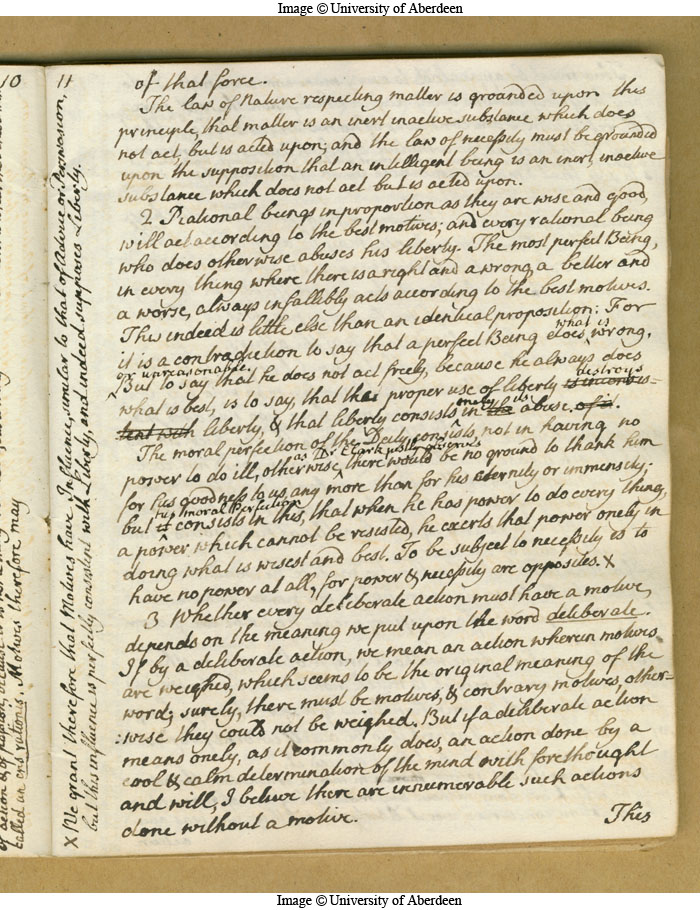 Image © University of Aberdeen
10
11
of that force.
The law of Nature respecting matter is grounded upon this
principle, that matter is an inert inactive substance which does
not act, but is acted upon; and the law of necessity must be grounded
upon the supposition that an intelligent being is an inert, inactive
substance which does not act but is acted upon.
2 Rational beings in proportion as they are wise and good,
will act according to the best motives; and every rational being
who does otherwise abuses his liberty. The most perfect Being,
in every thing where there is a right and a wrong, a better and
a worse, always infallibly acts according to the best motives.
This indeed is little else than an identical proposition: For
it is a contradiction to say that a perfect Being does what is wrong,
or unreasonable.
But to say that he does not act freely, because he always does
what is best, is to say, that the proper use of liberty destroys is inconsis=
tent with liberty, & that liberty consists onely in its the abuse. of it.
The moral perfection of the Deity consists, not in having no
power to do ill, otherwise, as Dr Clark justly observes there would be no ground to thank him
for his goodness to us, any more than for his eternity or immensity;
but his moral Perfection it consists in this, that when he has power to do every thing,
a power which cannot be resisted, he exerts that power onely in
doing what is wisest and best. To be subject to necessity is to
have no power at all, for power & necessity are opposites. X
3 Whether every deliberate action must have a motive,
depends on the meaning we put upon the word deliberate.
If by a deliberate action, we mean an action wherein motives
are weighed, which seems to be the original meaning of the
word; surely, there must be motives, & contrary motives, other-
wise they could not be weighed. But if a deliberate action
means onely, as it commonly does, an action done by a
cool & calm determination of the mind with forethought
and will, I believe there are innumerable such actions
done without a motive.
This
X We grant therefore that Motives have Influence, similar to that of Advice or Perswasion,
but this influence is perfectly consistent with Liberty, and indeed supposes Liberty.
Motives therefore may
Image © University of Aberdeen